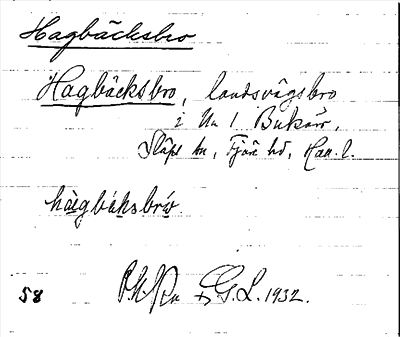 Hagbäcksbro
Hagbäcksbro, landsvägsbro
i Un 1 Bukärr,
Släps sn, Fjäre hd, Hall. l.
hàgbäksbrö
58 G.L. 1932.